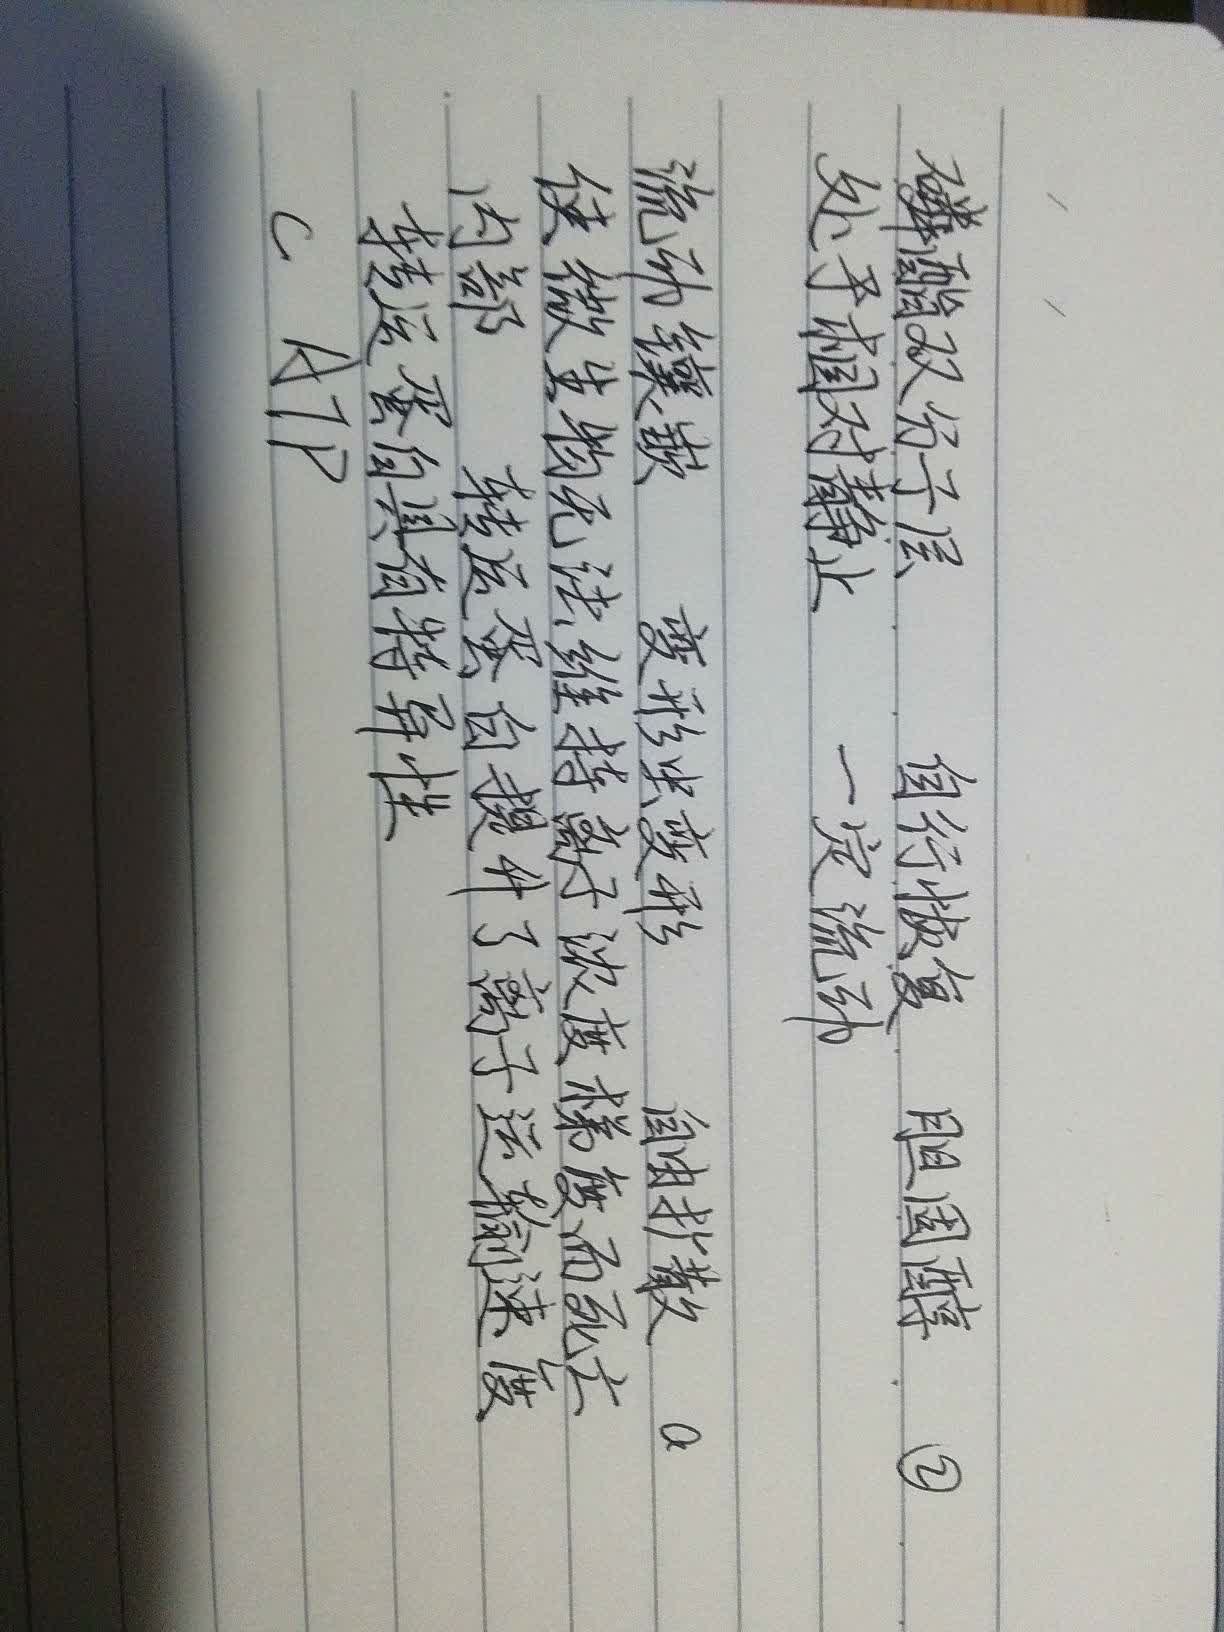 磷酯双分子层 自行恢复 胆固醇 ②
处于相对静止 一定流动
流动镶嵌 变形虫变形 自由扩散 a
使微生物无法维持离子浓度梯度而死亡
内部 转运蛋白提升了离子运输速度
转运蛋白具有特异性
C ATP